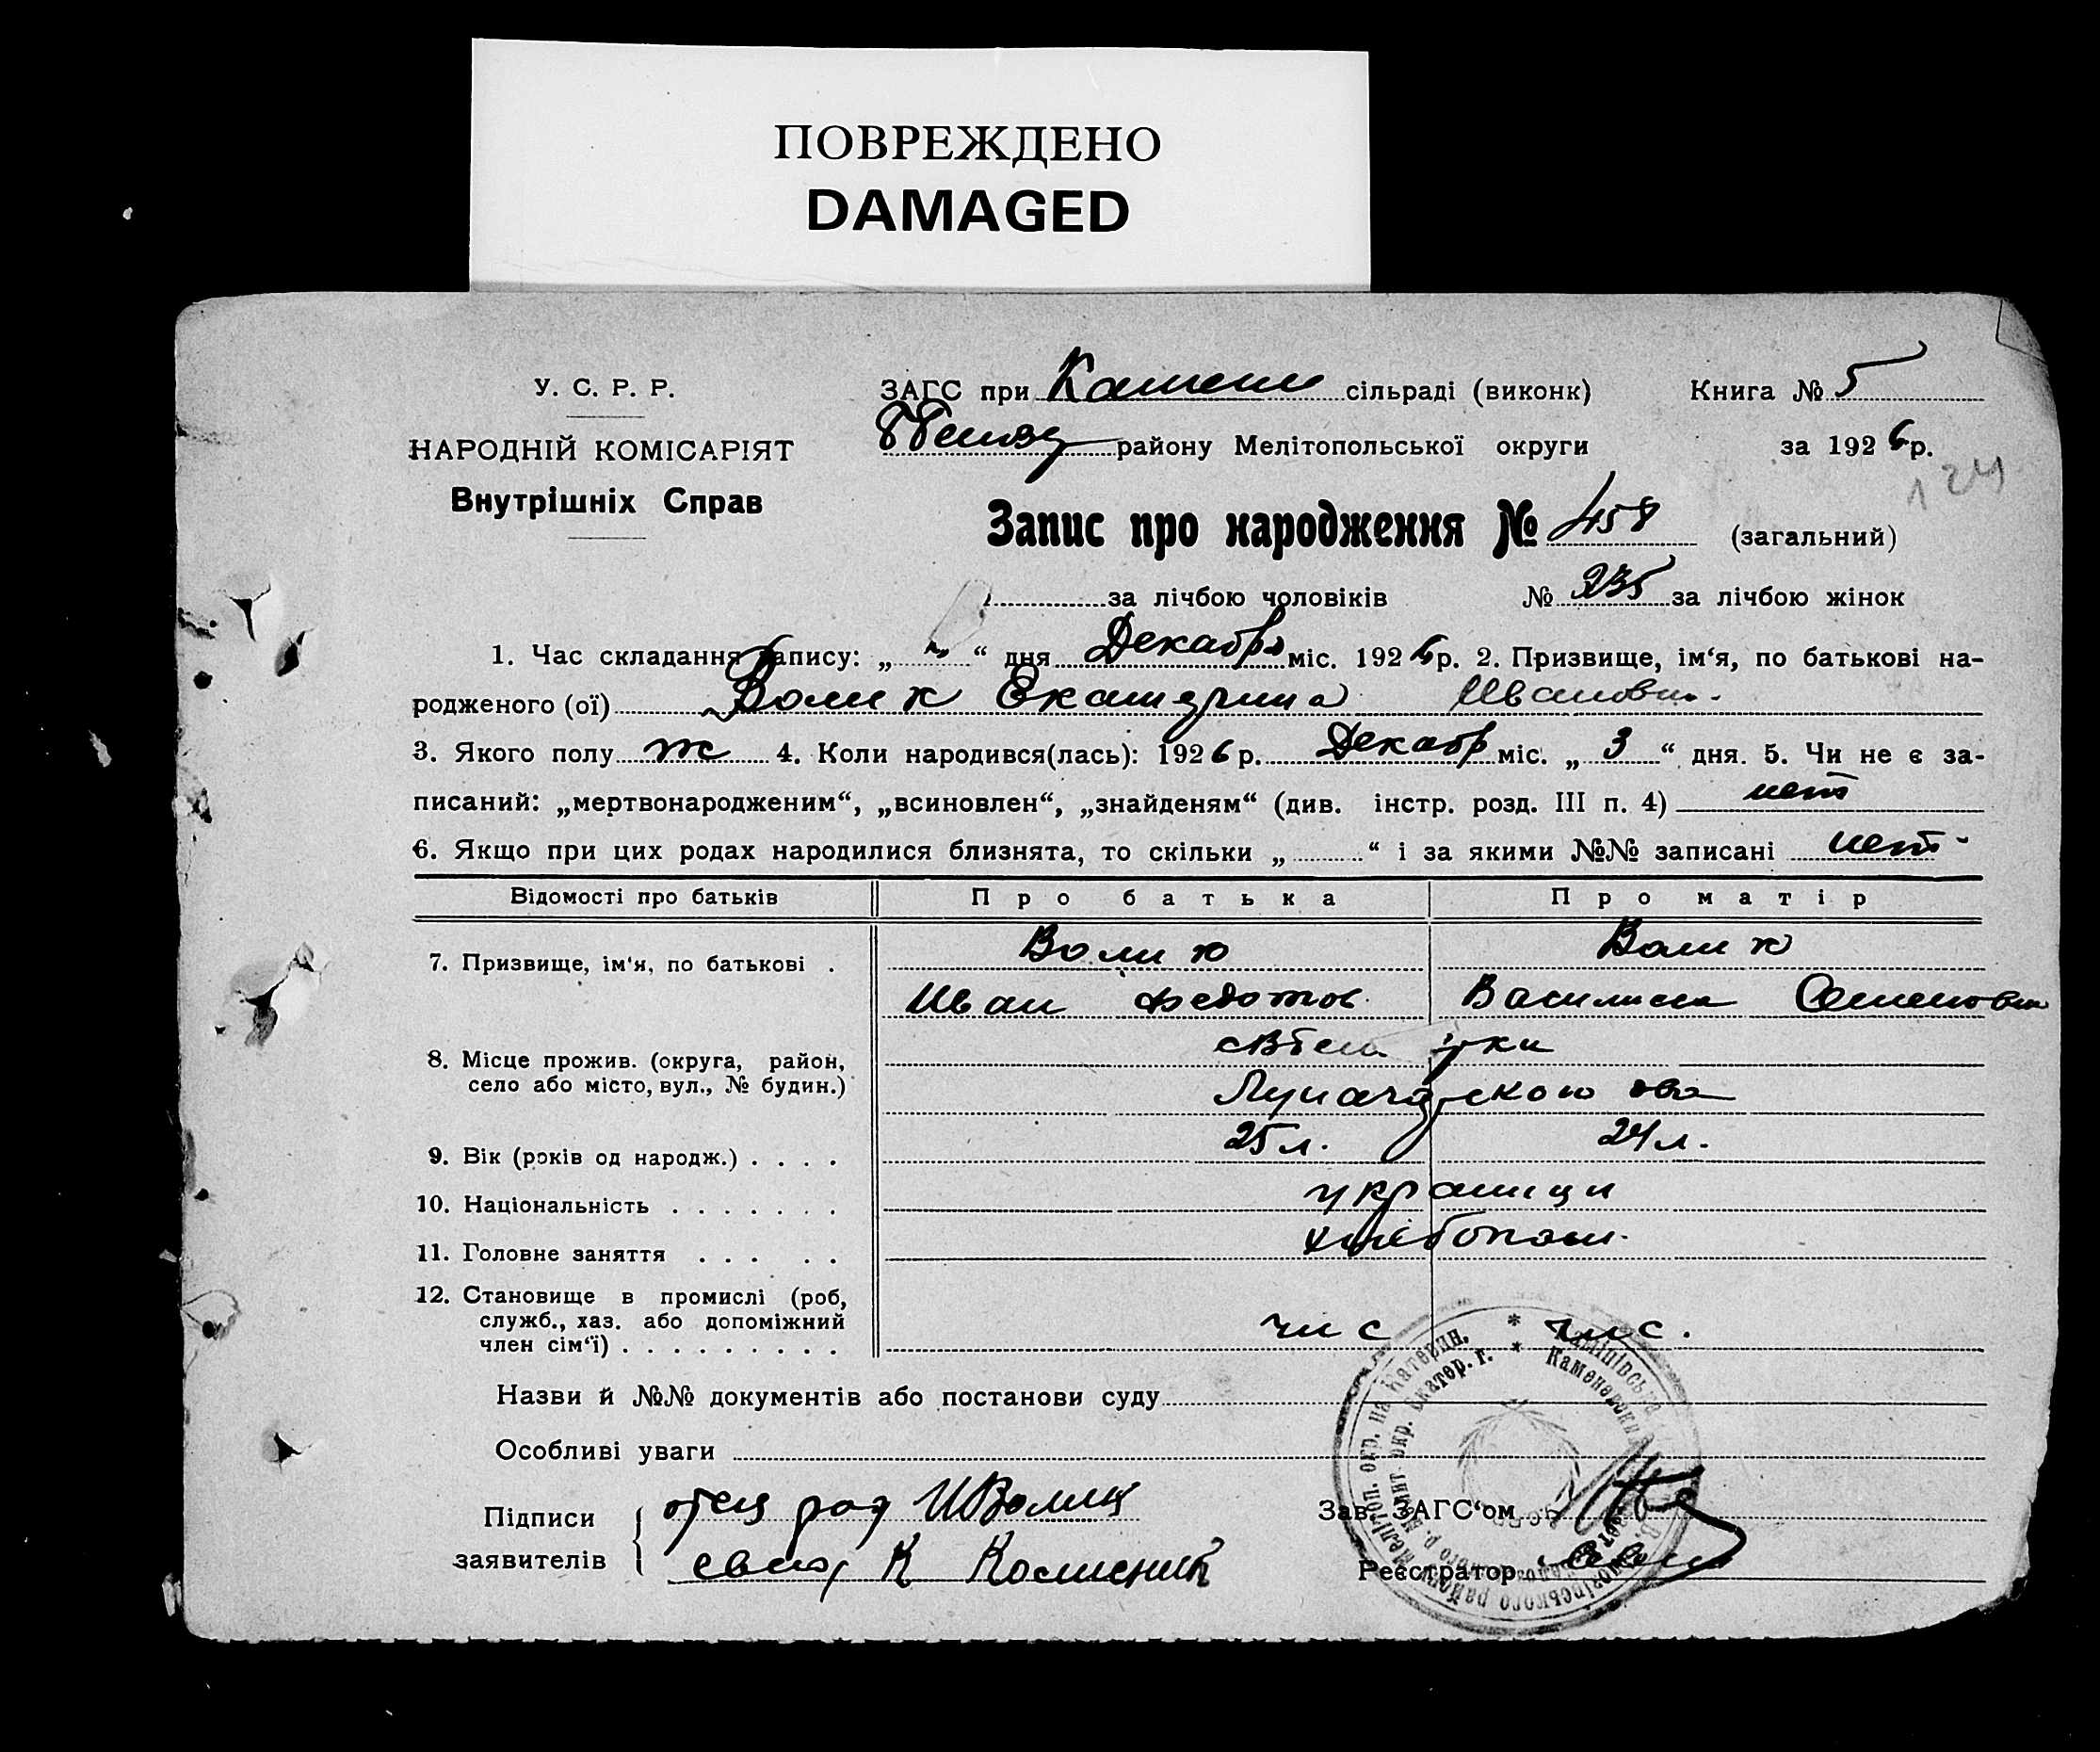 ПОВРЕЖДЕНО
DAMAGED
У. С. Р. Р.
НАРОДНІЙ КОМІСАРІЯТ
Внутрішніх Справ
ЗАГС при Камени сільраді (виконк)
району Мелітопольської округи
Книга № 5
за 1926 р.
124
Запис про народження № 458 (загальний)
за лічбою чоловіків № 235 за лічбою жінок
1. Час складання запису: „ “ дня Декабря міс. 1926 р. 2. Призвище, ім‘я, по батькові на-
родженого (ої) Волик Екатерина Ивановн.
3. Якого полу ж 4. Коли народився(лась): 1926 р. Декабр міс. „ 3 “ дня. 5. Чи не є за-
писаний: „мертвонародженим“, „всиновлен“, „знайденям“ (див. інстр. розд. III п. 4) нет
6. Якщо при цих родах народилися близнята, то скільки „ “ і за якими №№ записані нет
Відомості про батьків Про батька Про матір
7. Призвище, ім‘я, по батькові . Волик Волик
Иван Федотов. Василиса Семеновн
8. Місце прожив. (округа, район,
село або місто, вул., № будин.)
9. Вік (років од народж.) . . . . 25 л. 24 л.
10. Національність . . . . . . . украинци
11. Головне заняття . . . . . хлібопаш.
12. Становище в промислі (роб,
служб., хаз. або допоміжний
член сім‘ї) . . . . . . . . . чле чле.
Назви й №№ документів або постанови суду
Особливі уваги
Підписи
заявителів
отец И Волик
К
Зав. ЗАГС‘ом
Реєстратор